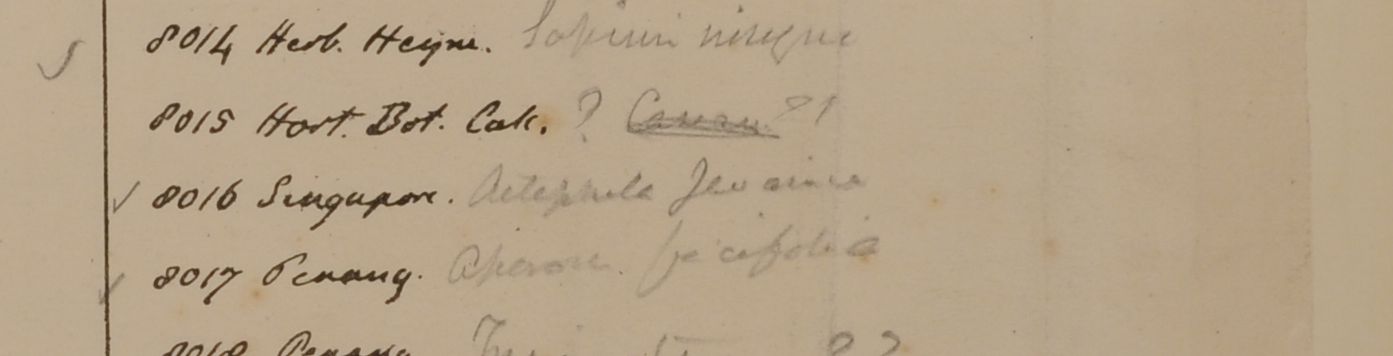 8014 Herb. Heyne. Sapium insigne
8015 Hort. Bot. Cal. ? ?
8016 Singapore. Actephila Javanica
8017 Penang. Aporosa
8018 Penang ??